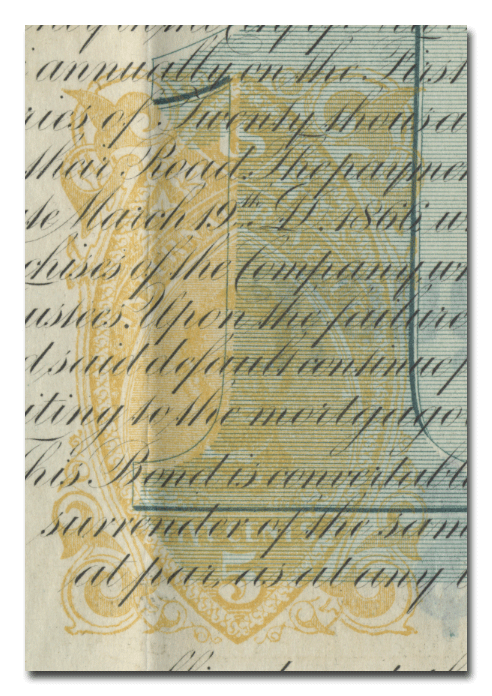 annually on the First
ries of Twenty thousa
their Road. The payme
te March 19th D. 1866 w
chises of the Company w
ustees. Upon the future
d said default continue f
iting to the mortgago
This Bond is convertabl
surrender of the sam
at par, as at any
U.S.
5